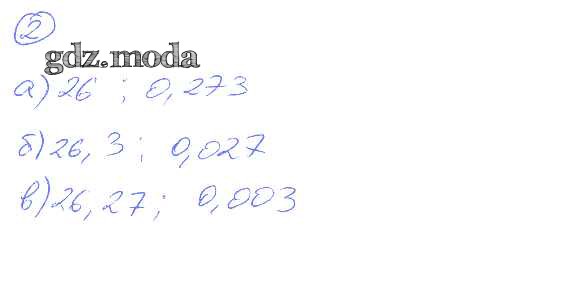 2
gdz.moda
а) 26 ; 0,273
б) 26,3 ; 0,027
в) 26,27 ; 0,003